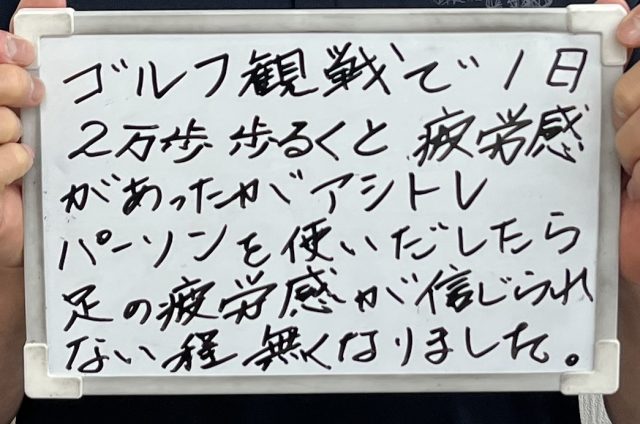 ゴルフ観戦で1日
2万歩歩るくと疲労感
があったがアシトレ
パーソンを使いだしたら
足の疲労感が信じられ
ない程無くなりました。